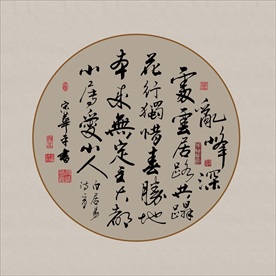 亂峰深
處雲居路共蹋
花行獨惜春勝地
本來無定主大都
山屬愛山人
白居易
華平書